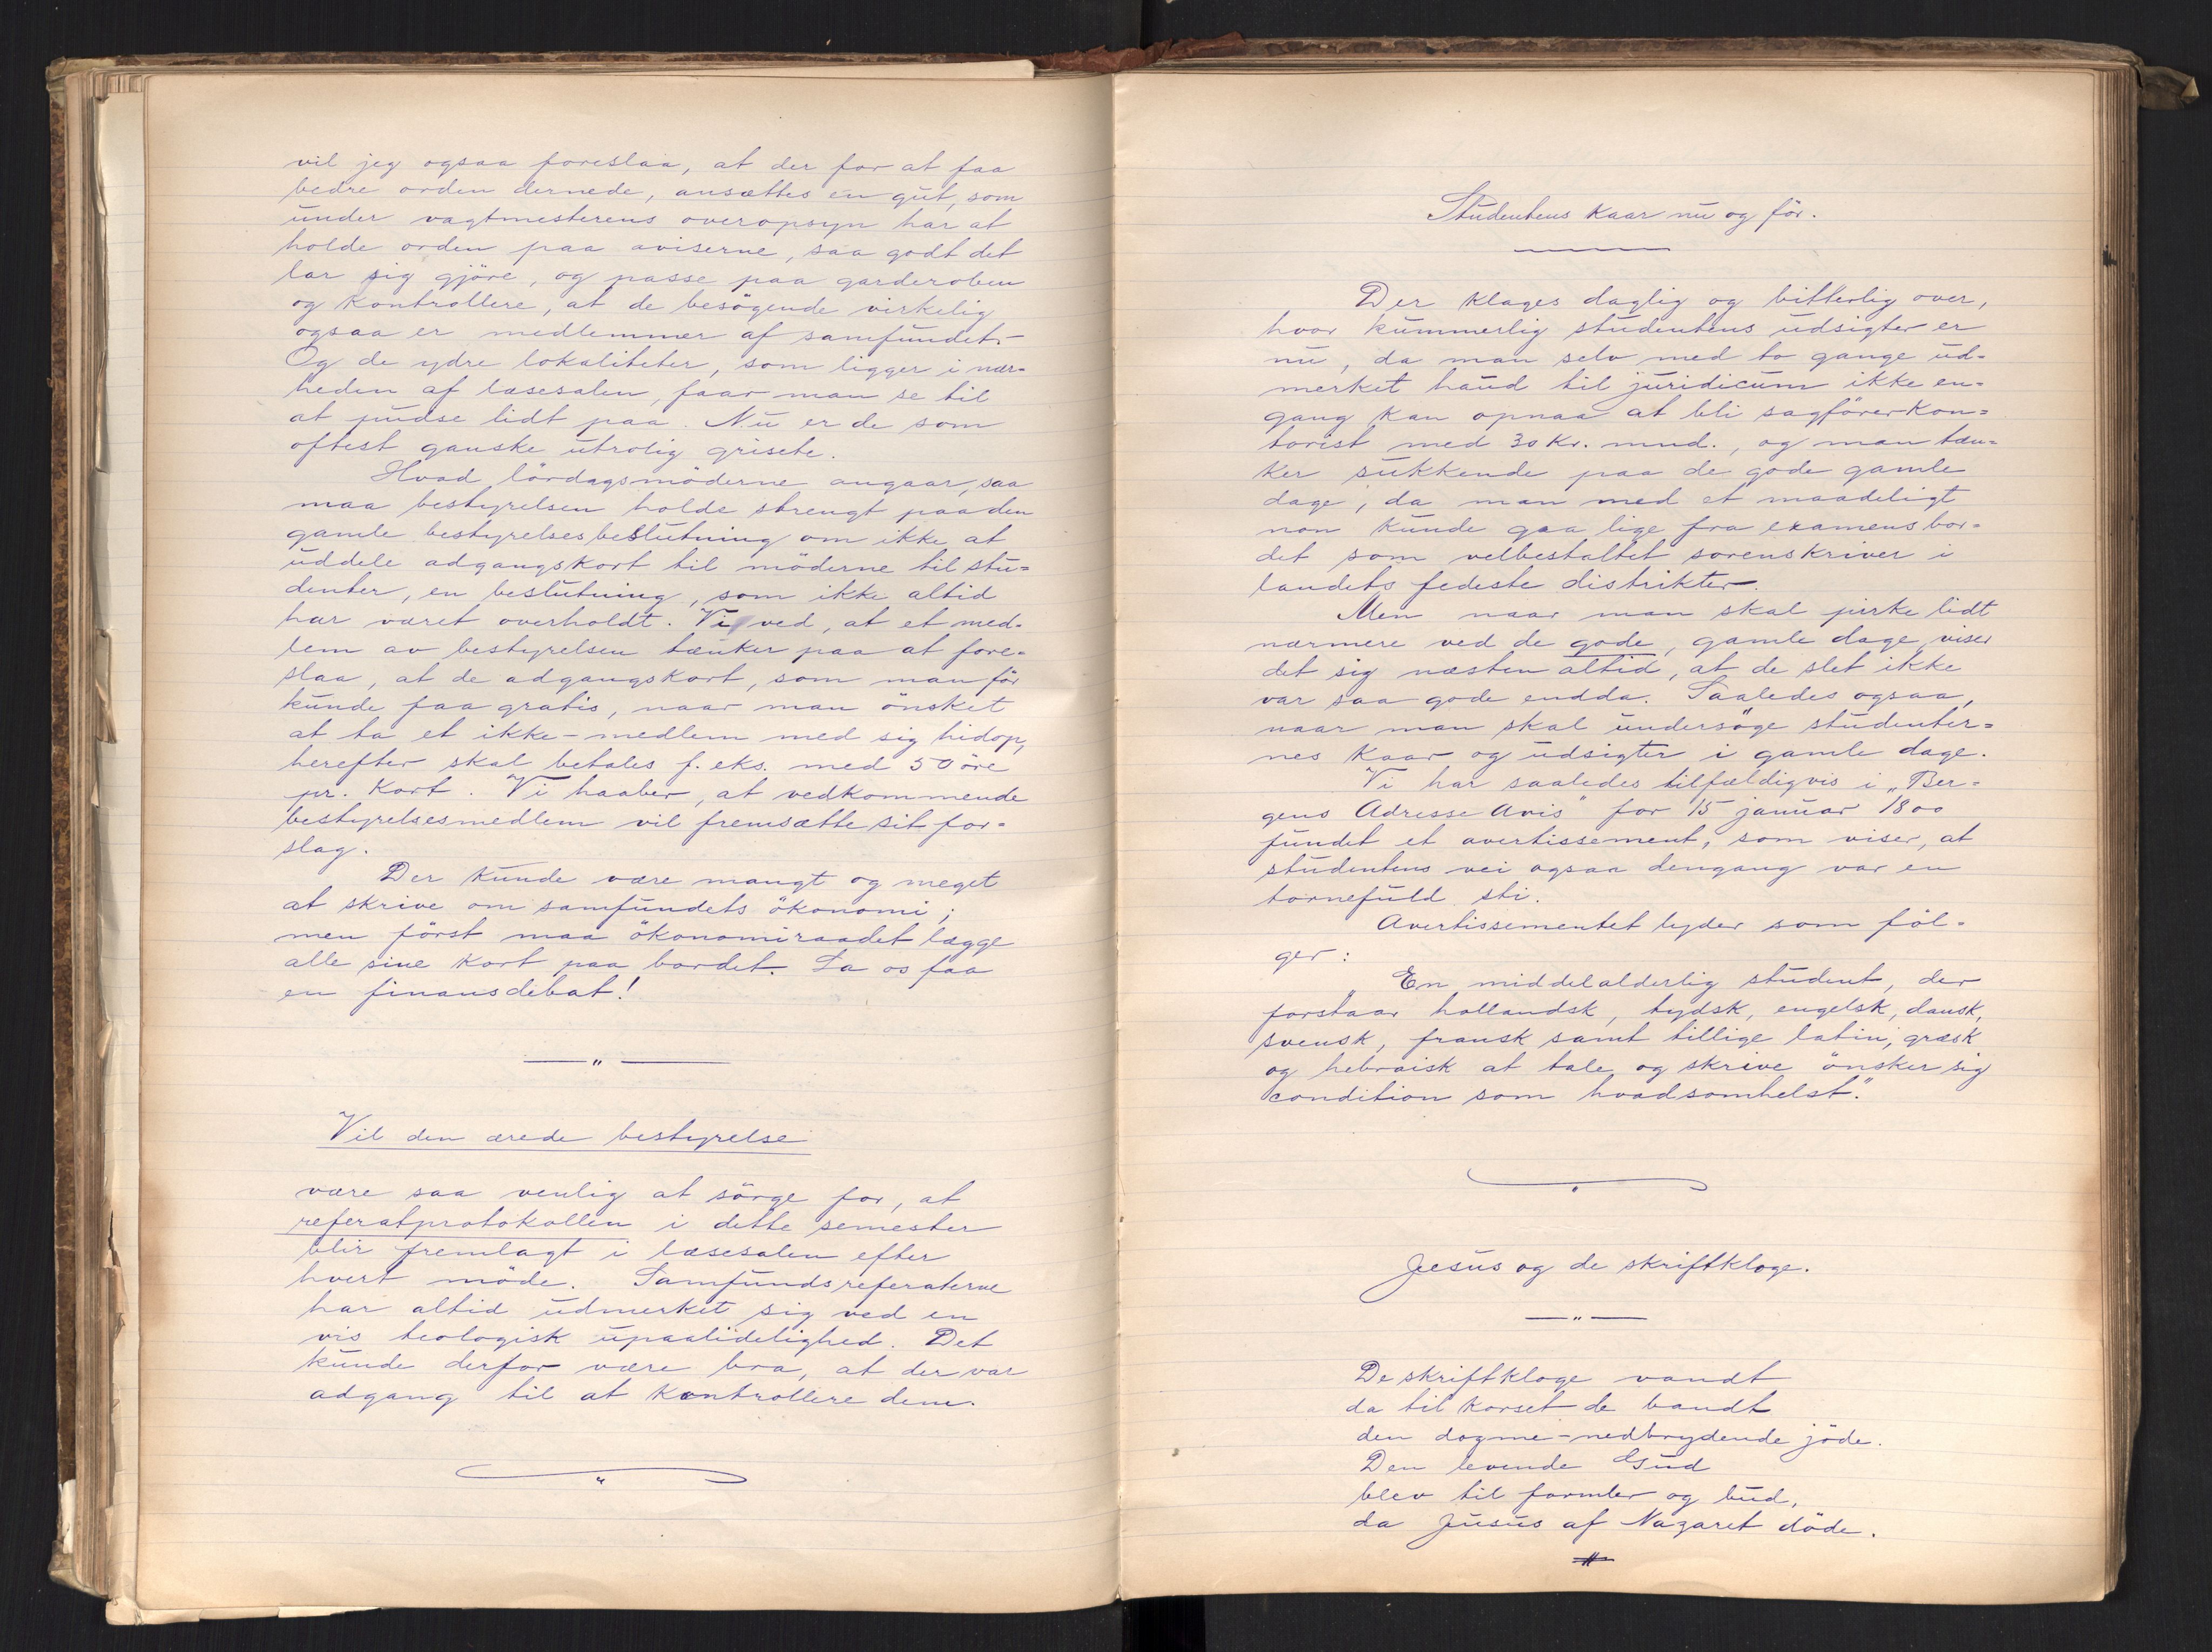 vil jeg ogsaa foreslaa, at der for at faa
bedre orden dernede, ansættes en gut, som
under vagtmesterens overopsyn har at
holde orden paa aviserne, saa godt det
lar sig gjöre, og passe paa garderoben
og kontrollere, at de besögende virkelig
ogsaa er medlemmer af samfundet.
Og de ydre lokaliteter, som ligger i nær-
heden af læsesalen, faar man se til
at pudse lidt paa. Nu er de som
oftest ganske utrolig grisete.
Hvad lördagsmöderne angaar, saa
maa bestyrelsen holde strengt paa den
gamle bestyrelsesbeslutning om ikke at
uddele adgangskort til möderne til stu=
denter, en beslutning, som ikke altid
har været overholdt. Vi ved, at et med-
lem av bestyrelsen tænker paa at fore-
slaa, at de adgangskort, som man för
kunde faa gratis, naar man önsket
at ta et ikke-medlem med sig hidop,
herefter skal betales f. eks. med 50 öre
pr. kort. Vi haaber, at vedkommende
bestyrelsesmedlem vil fremsætte sit for=
slag.
Der kunde være mangt og meget
at skrive om samfundets ökonomi;
men först maa ökonomiraadet lægge
alle sine kort paa bordet. La os faa
en finansdebat!
Vil den ærede bestyrelse
være saa venlig at sörge for, at
referatprotokollen i dette semester
blir fremlagt i læsesalen efter
hvert möde. Samfundsreferaterne
har altid udmerket sig ved en
vis teologisk upaalidelighed. Det
kunde derfor være bra, at der var
adgang til at kontrollere dem.
Studentens kaar nu og för.
Der klages daglig og bitterlig over,
hvor kummerlig studentens udsigter er
nu, da man selv med to gange ud=
merket haud til juridicum ikke en=
gang kan opnaa at bli sagförerkon=
torist med 30 kr. mnd., og man tæn=
ker sukkende paa de gode gamle
dage, da man med et maadeligt
non kunde gaa lige fra examensbor=
det som velbestaltet sorenskriver i
landets fedeste distrikter.
Men naar man skal pirke lidt
nærmere ved de gode, gamle dage, viser
det sig næsten altid, at de slet ikke
var saa gode endda. Saaledes ogsaa,
naar man skal undersöge studenter=
nes kaar og udsigter i gamle dage.
Vi har saaledes tilfældigvis i „Ber=
gens Adresse Avis" for 15 januar 1800
fundet et avertissement, som viser, at
studentens vei ogsaa dengang var en
tornefuld sti.
Avertissementet lyder som föl=
ger:
„En middelalderlig student, der
forstaar hollandsk, tydsk, engelsk, dansk,
svensk, fransk samt tillige latin, græsk
og hebraisk at tale og skrive önsker sig
condition som hvadsomhelst."
Jesus og de skriftkloge.
De skriftkloge vandt
da til korset de bandt
den dogme-nedbrydende jöde.
Den levende Gud
blev til formler og bud,
da Jusus af Nazaret döde.